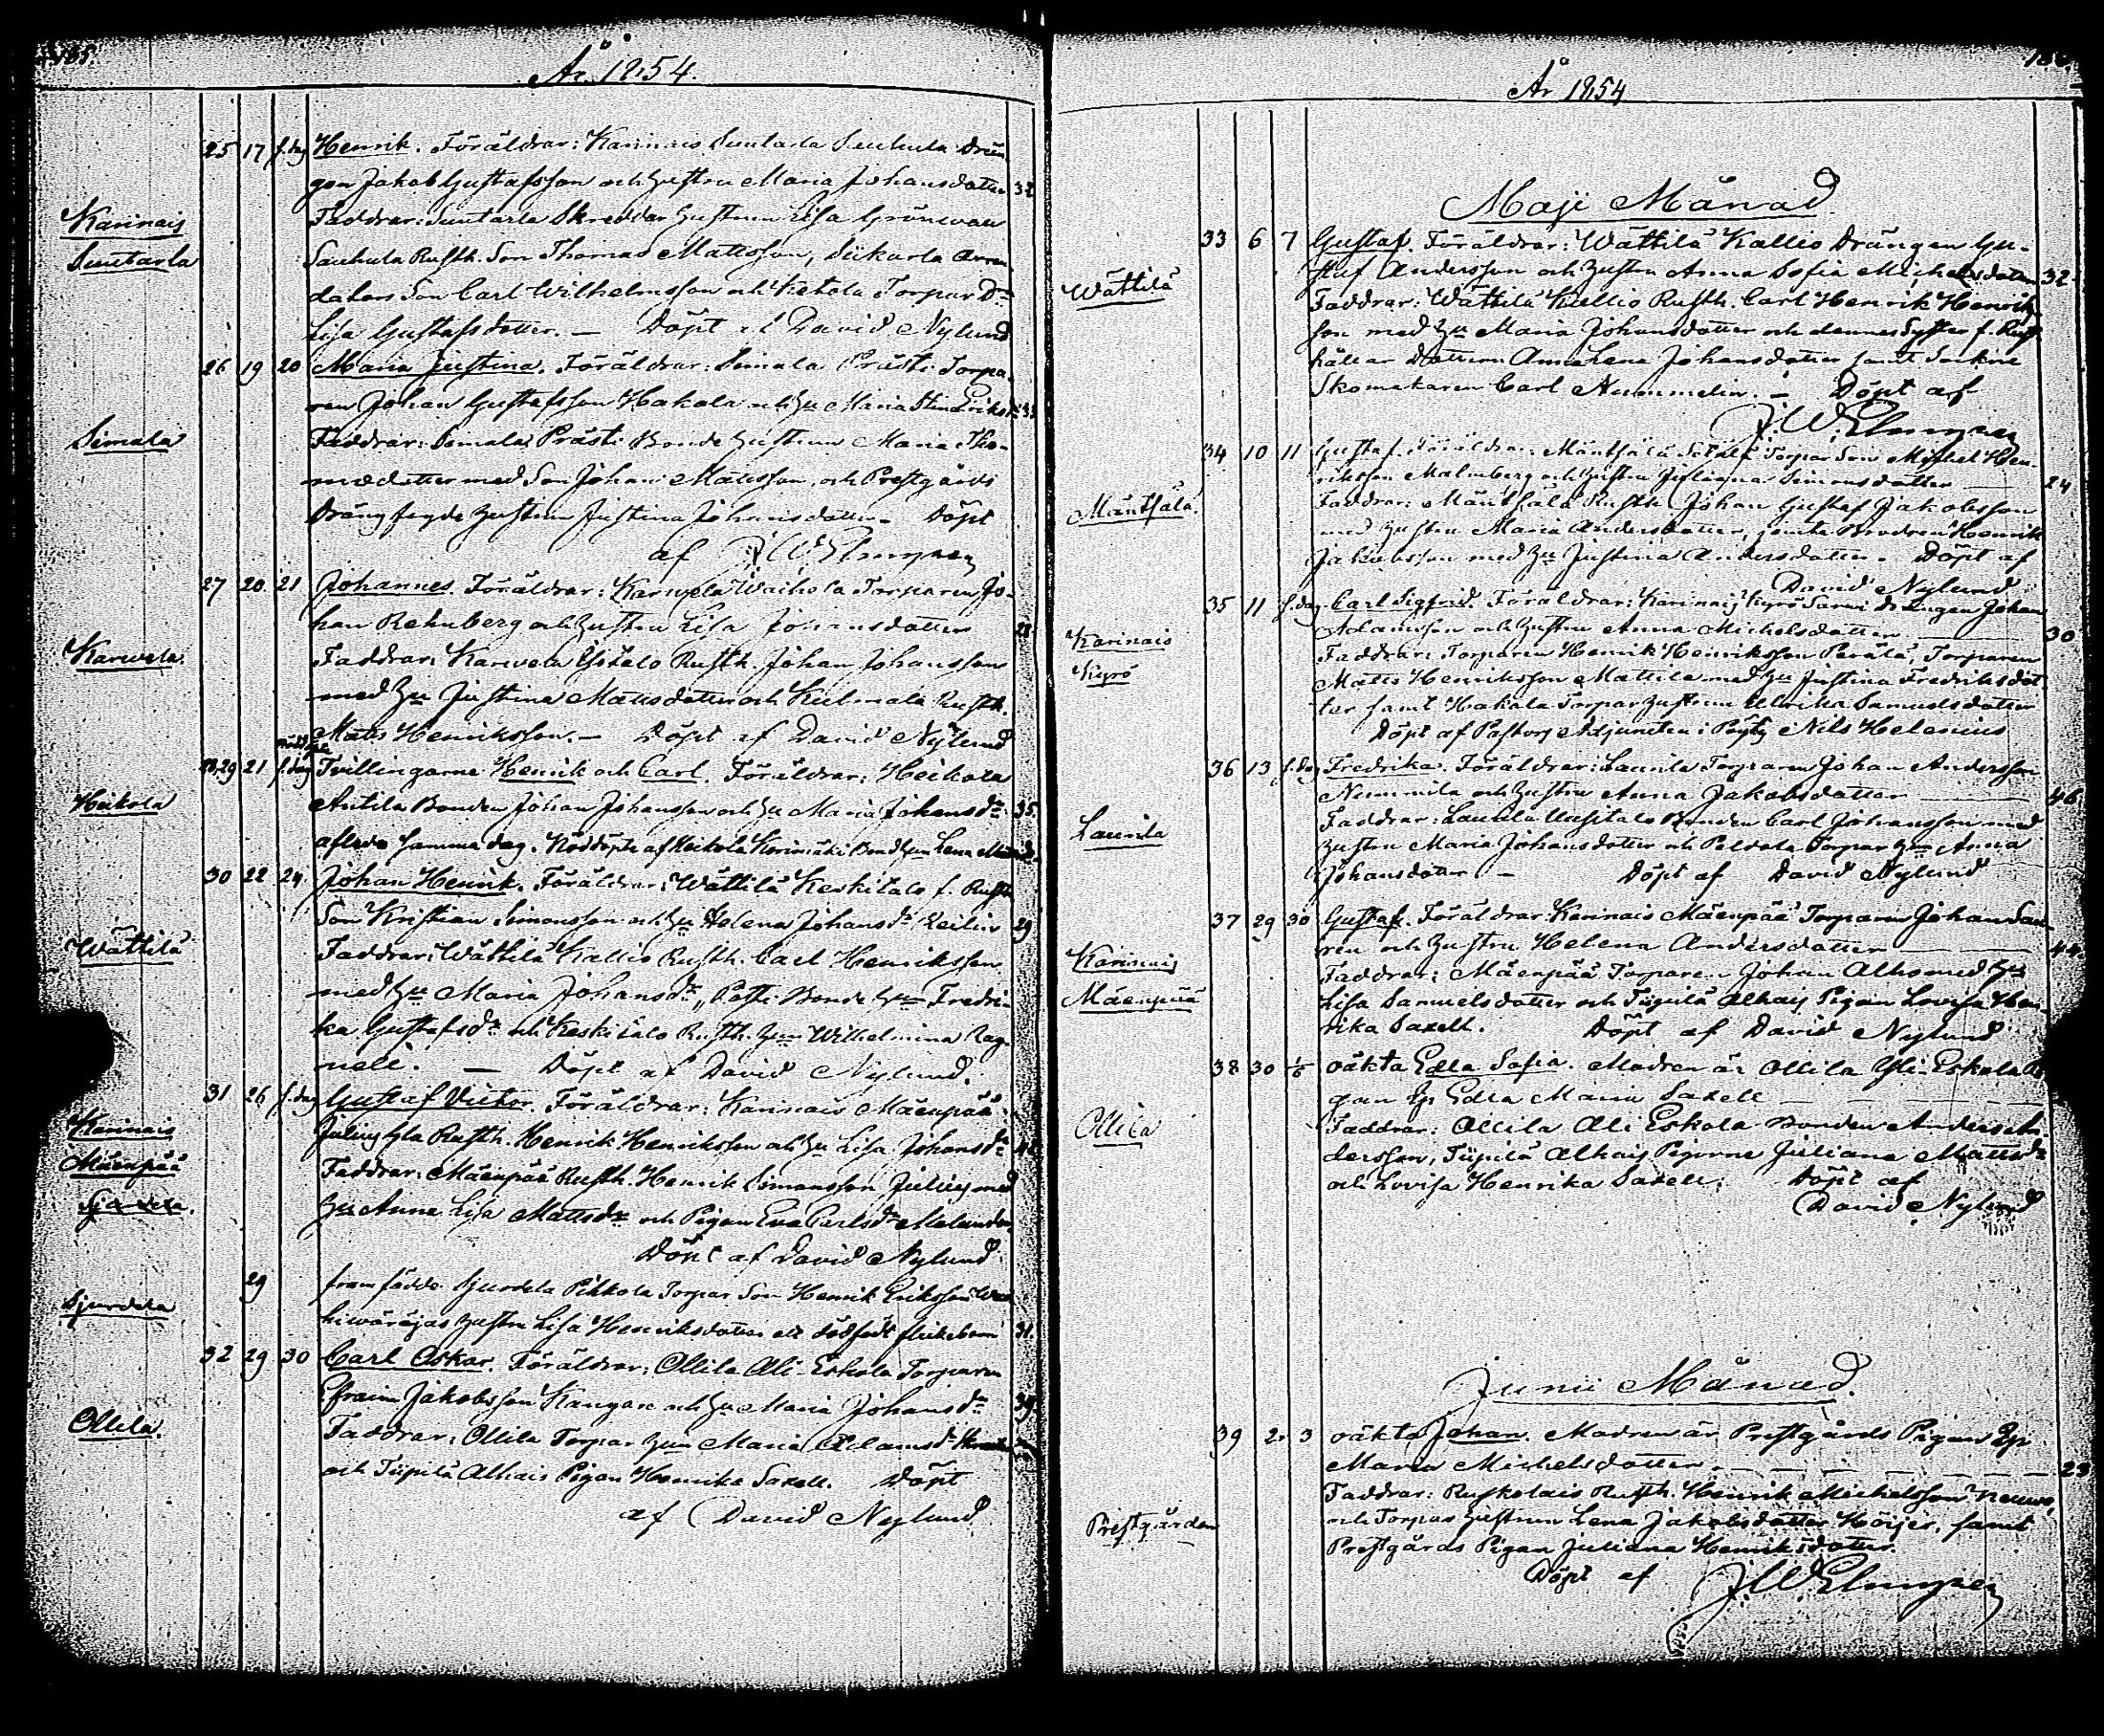 185.
År 1854.
25 17 f. dag Henrik. Föräldrar: Karinais Suntarla Sauhula Drän-
gen Jakob Gustafsson och hustru Maria Johansdotter 32
Karinais
Suntarla
Faddrar: Suntarla Skreddar hustrun Lisa Grönevall
Sauhula Rusth. Son Thomas Mattsson, Siikarla Arren-
dators Son Carl Wilhelmsson och Ketola Torpar Dr
Lisa Gustafsdotter. — Döpt af David Nylund
26 19 20 Maria Justina. Föräldrar: Simala Prästi Torpa-
ren Johan Gustafsson Hakala och hu Maria Stina Eriksdr 33
Simala
Faddrar: Simala Prästi Bonde hustrun Maria Tho-
masdotter med Son Johan Mattsson, och Prestgårds
Dräng hustrun Justina Johansdotter. Döpt
af
27 20. 21 Johannes. Föräldrar: Karwela Waihola Torparen Jo-
han Rehnberg och hustru Lisa Johansdotter 28
Karwela
Faddrar: Karwela Ylitalo Rusth. Johan Johansson
med hu Justina Mattsdotter och Kulmala Rusth.
Matts Henriksson. — Döpt af David Nylund
28,29 21 f. dag Tvillingarne Henrik och Carl. Föräldrar: Heikola
Heikola
Antila Bonden Johan Johansson och hu Maria Johansdr 35.
afledo samma dag. Nöddöpte af Heikola Korimäki Bond hun Lena
30 22 24. Johan Henrik. Föräldrar: Wättilä Keskitalo f. Rusth
Son Kristian Simonsson och hu Helena Johansdr Zeilin 29
Wättilä
Faddrar: Wättilä Kallio Rusth. Carl Henriksson
med hu Maria Johansdr, Posti Bonde hun Fredri-
ka Gustafsdr och Keskitalo Rusth. hun Wilhelmina Rag-
nell. — Döpt af David Nylund.
31 26 f. dag Gustaf Victor. Föräldrar: Karinais Mäenpää
Karinais
Mäenpää
Juliusfyla Rusth. Henrik Henriksson och hu Lisa Johansdr 42
Faddrar: Mäenpää Rusth. Henrik Simonsson Julius med
hu Anna Lisa Mattsdr och Pigan Eva Carlsdr
Döpt af David Nylund
29 framfödde Gjurdela Pikkola Torpar Son Henrik Eriksson
Gjurdela
hustru Lisa Henriksdotter ett dödfödt flickebarn 31.
32 29 30 Carl Oskar. Föräldrar: Ollila Ali-Eskola Torparen
Efraim Jakobsson Kangare och hu Maria Johansdr 39
Ollila.
Faddrar: Ollila Torpar hun Maria Adamsdr
och Tiipilä Alhais Pigan Henrika Saxell. Döpt
af David Nylund
År 1854
Maji Månad.
33 6 7 Gustaf. Föräldrar: Wättilä Kallio Drängen Gu-
staf Andersson och hustru Anna Sofia Michelsdotter 32
Wättilä
Faddrar: Wättilä Kallio Rusth. Carl Henrik Henriks-
son med hu Maria Johansdotter och dennes Syster f. Rust-
hållar Dottren Anna Lena Johansdotter samt Sockne
Skomakaren Carl Nummelin. — Döpt af
34 10 11 Gustaf. Föräldrar: Mäntsälä Sotala Torpar Son Michel Hen-
riksson Malmberg och hustru Juliana Simonsdotter 24
Mäntsälä
Faddrar: Mäntsälä Rusth. Johan Gustaf Jakobsson
med hustru Maria Andersdotter, jemte Brodren Henrik
Jakobsson med hu Justina Andersdotter. Döpt af
David Nylund
35 11 f. dag Carl Sigfrid. Föräldrar: Karinais Kyrö Sarvi Drängen Johan
Adamsson och hustru Anna Michelsdotter 30
Karinais
Kyrö
Faddrar: Torparen Henrik Henriksson Perälä, Torparen
Matts Henriksson Mattila med hu Justina Fredriksdot-
ter samt Hakala Torpar hustrun Ulrika Samuelsdotter
Döpt af Pastors Adjuncten i Pöytis Nils Helenius
36 13 f. dag Fredrika. Föräldrar: Laurila Torparen Johan Andersson
Nummila och hustru Anna Jakobsdotter 46
Laurila
Faddrar: Laurila Uusitalo Bonden Carl Johansson med
hustru Maria Johansdotter och Peldola Torpar hun Anna
Johansdotter — Döpt af David Nylund
37 29 30 Gustaf. Föräldrar: Karinais Mäenpää Torparen Johan Saa-
ren och hustru Helena Andersdotter 44
Karinais
Mäenpää
Faddrar: Mäenpää Torparen Johan Alho med hu
Lisa Samuelsdotter och Tiipilä Alhais Pigan Lovisa Hen-
rika Saxell. Döpt af David Nylund
38 30 1/6 oäkta Edla Sofia. Modren är Ollila Yli-Eskola Pi-
gan Ep Edla Maria Saxell
Ollila
Faddrar: Ollila Ali Eskola Bonden Anders An-
dersson, Tiipilä Alhais Pigorne Juliana Mattsdr
och Lovisa Henrika Saxell. Döpt af
David Nylund
Junii Månad.
39 2 3 oäkta Johan. Modren är Prestgårds Pigan Ep
Maria Michelsdotter. 23
Faddrar: Ruskolais Rusth. Henrik Michelsson
Prestgården
och Torpar hustrun Lena Jakobsdotter Höijer, samt
Prestgårds Pigan Juliana Henriksdotter.
Döpt af